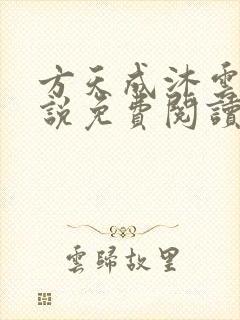 方天成沐雲
説免費閱讀
雲歸故里